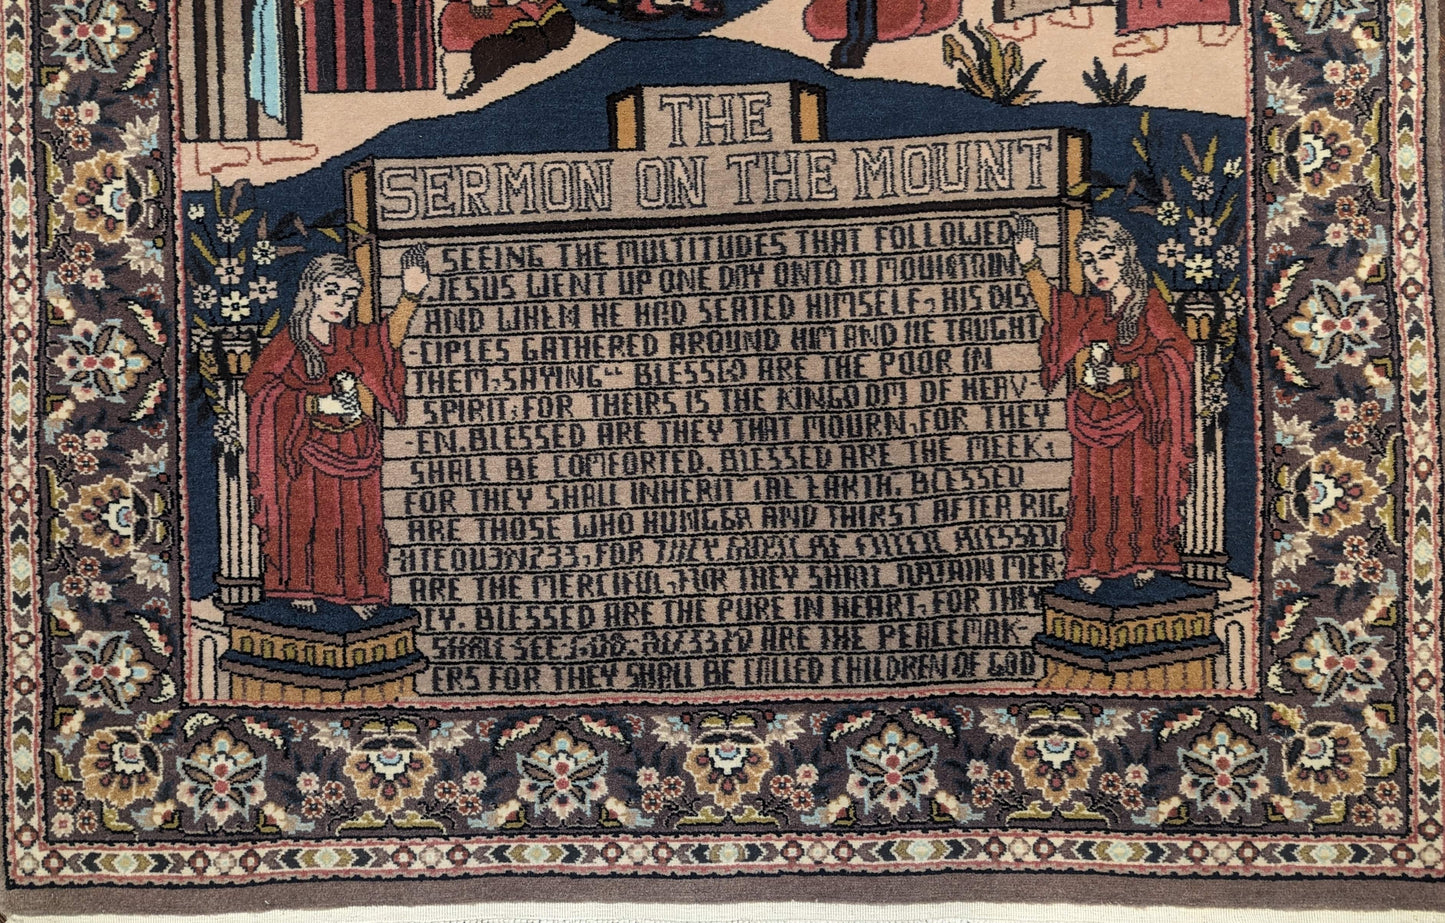 THE
SERMON ON THE MOUNT
SEEING THE MULTITUDES THAT FOLLOWED
JESUS WENT UP ONE DAY ONTO A MOUIGTAIN
AND WHEN HE HAD SEATED HIMSELF, HIS DIS
-CIPLES GATHERED AROUND HIM AND HE TAUGHT
THEM, SAYING“ BLESSED ARE THE POOR IN
SPIRIT; FOR THEIRS IS THE KINGDOM OF HEAV-
-EN. BLESSED ARE THEY THAT MOURN, FOR THEY
SHALL BE COMFORTED. BLESSED ARE THE MEEK.
FOR THEY SHALL INHERIT BLESSED
ARE THOSE WHO AND THIRST AFTER RIG
FOR THEY BE BLESSED
ARE THE MERCIFUL, FOR THEY SHALL MER-
CY. BLESSED ARE THE PURE IN HEART, FOR THEY
SHALL SEE ARE THE PEACEMAK-
ERS FOR THEY SHALL BE CALLED CHILDREN OF GOD